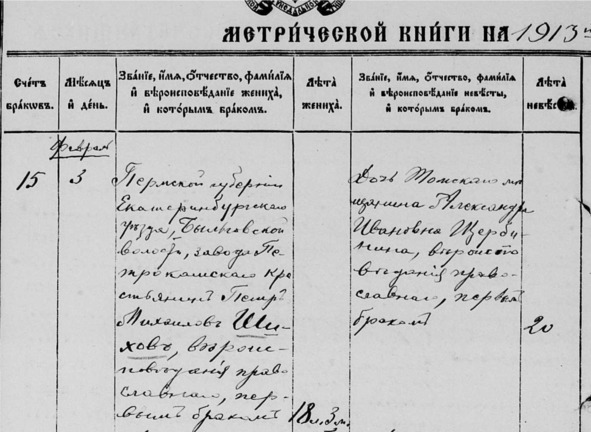 МЕТРИ́ЧЕСКОЙ КНИ́ГИ НА 1913
Сче́тъ бра́ковъ.
Мѣ́сяцъ и҆ де́нь.
Зва́нїе, и҆́мѧ, ѻ҆́тчество, фамилїѧ и҆ вѣроисповѣ́данїе жениха̀, и҆ кото́рымъ бра́комъ.
Лѣ́та жениха̀.
Зва́нїе, и҆́мѧ, ѻ҆́тчество, фамилїѧ и҆ вѣроисповѣ́данїе невѣ́сты, и҆ кото́рымъ бра́комъ.
Лѣ́та
Февраль
15
3
Пермской губернiи
Екатеринбургскаго
уѣзда,
волости, завода Пе-
трокамскаго Кре-
стьянинъ Петръ
Михаиловъ Ши-
ховъ, вѣроис-
повѣданiя право-
славнаго, пер-
вымъ бракомъ
18 л. 3 м.
Дочь Томскаго мѣ-
щанина Александра
Ивановна Щерби-
нина, вѣроиспо-
вѣданiя право-
славнаго, первымъ
бракомъ
20